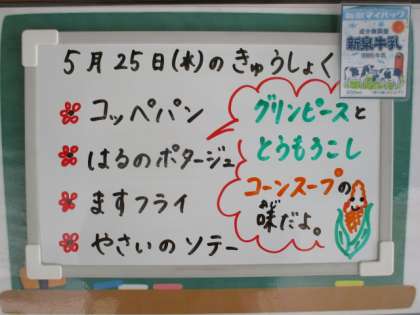 5月25日(水)のきゅうしょく
コッペパン
はるのポタージュ
ますフライ
やさいのソテー
グリンピースと
とうもろこし
コーンスープの
味だよ。
あじ
新泉牛乳